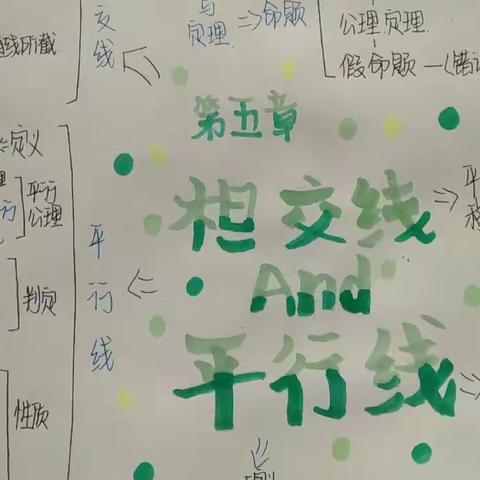 线所截
交线
与
定理 ⇒ 命题
公理定理
假命题 —（错
第五章
相交线
And
平行线
定义
平行
公理
判定
性质
平行线
平